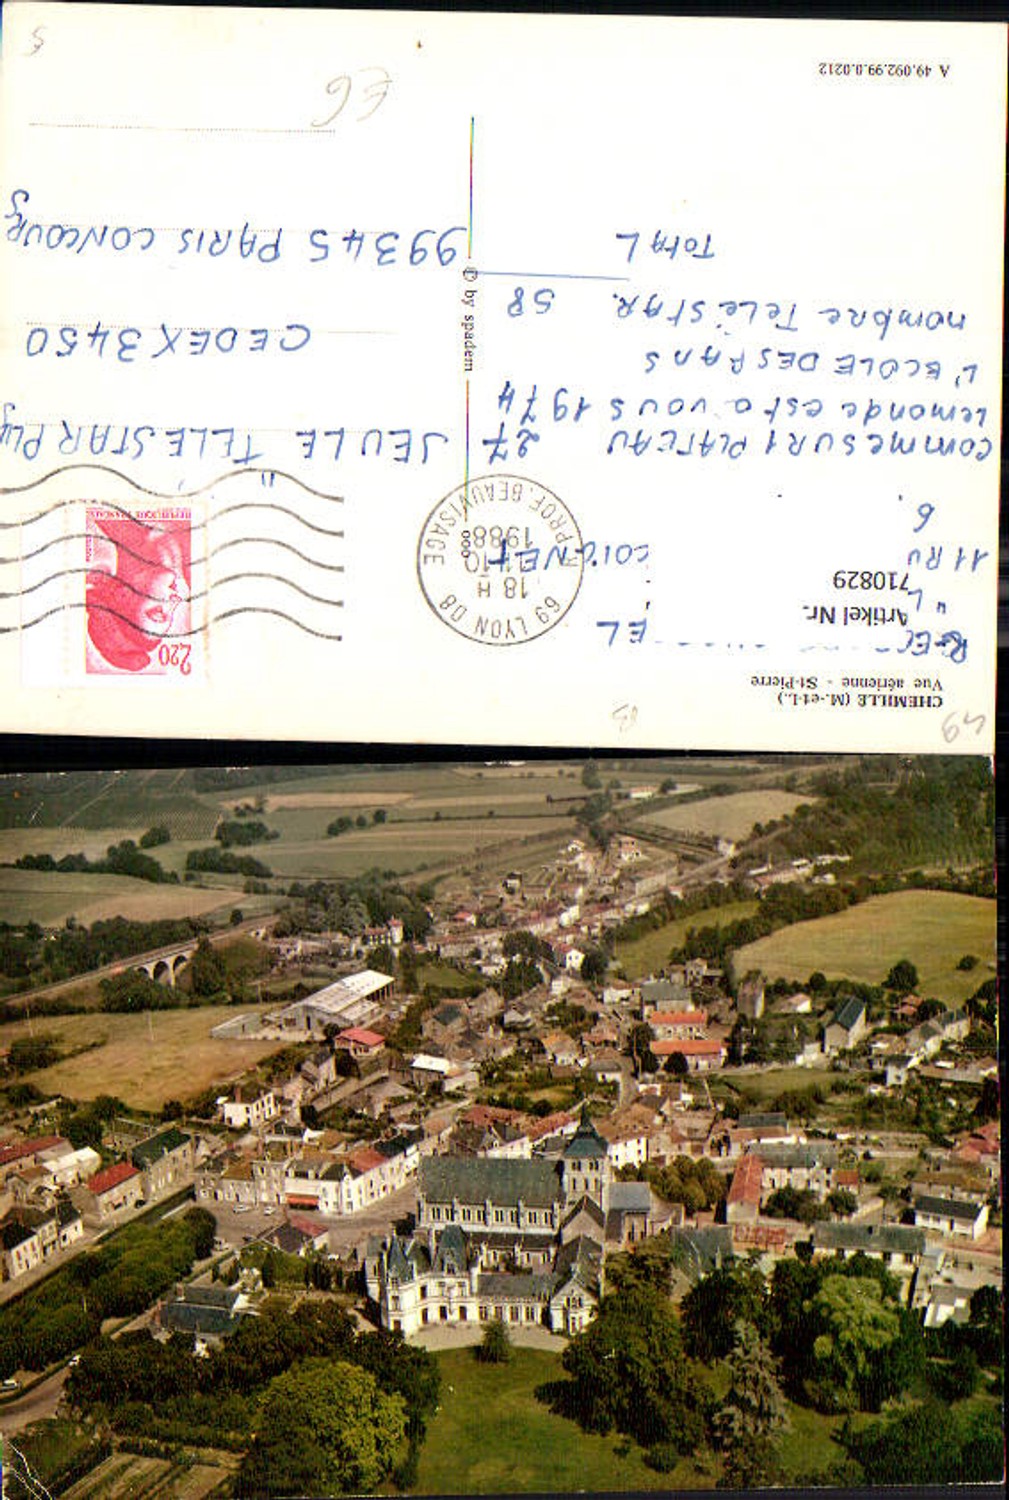 CHEMILLE (M.-et-L.)
Vue aérienne - St-Pierre
Artikel Nr.
710829
11 RU COIGNET
6
comme SUR 1 PLATEAU 27
Lemonde est a vous 1974
L'ECOLE DES FANS
nombre TELESTAR. 58
TOTAL
A 49.092.99.0.0212
© by spadem
69 LYON 08
18 H
11-10
1988
R.PROF.BEAUVISAGE
2,20
REPUBLIQUE FRANÇAISE
JEU LE TELE STAR PLUS
CEDEX 3450
99345 PARIS CONCOURS
E6
49
B